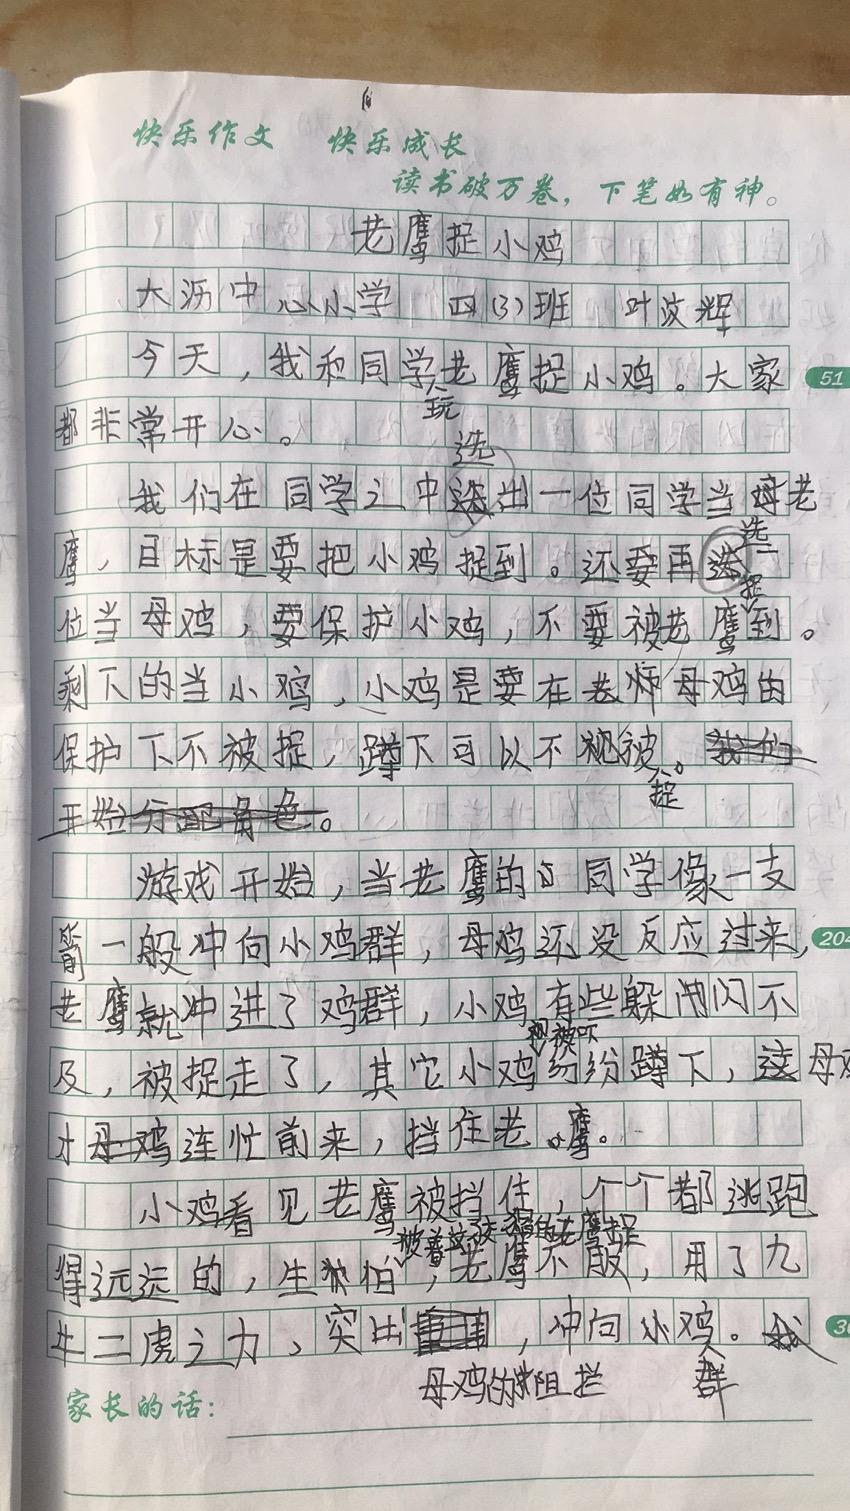 快乐作文 快乐成长
读书破万卷，下笔如有神。
老鹰捉小鸡
大沥中心小学 四(3)班 叶汶辉
今天，我和同学玩老鹰捉小鸡。大家
51
都非常开心。
我们在同学之中选出一位同学当老
鹰，目标是要把小鸡捉到。还要再选一
位当母鸡，要保护小鸡，不要被老鹰捉到。
剩下的当小鸡，小鸡是要在母鸡的
保护下不被捉，蹲下可以不被捉。
游戏开始，当老鹰的同学像一支
箭一般冲向小鸡群，母鸡还没反应过来，
204
老鹰就冲进了鸡群，小鸡有些躲闪不
及，被捉走了，其它小鸡被吓纷纷蹲下，这母鸡
才连忙前来，挡住老鹰。
小鸡看见老鹰被挡住，个个都逃跑
得远远的，生怕被老鹰捉，老鹰不服，用了九
牛二虎之力，突出母鸡的阻拦，冲向小鸡群。
家长的话：